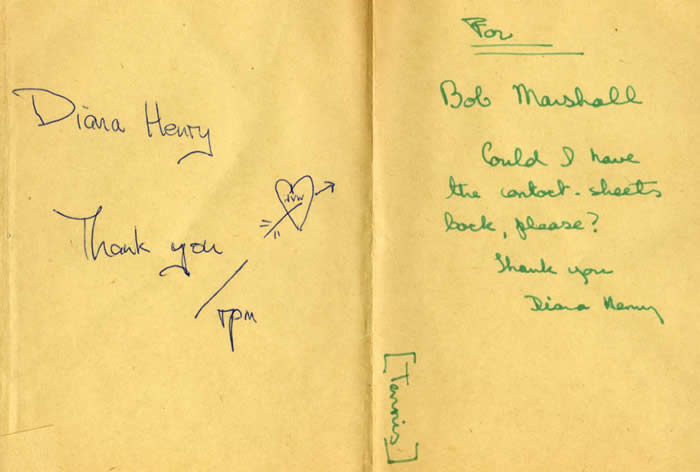 Diana Henry
Thank you
/rpm
For
Bob Marshall
Could I have
the contact-sheets
back, please?
Thank you
Diana Henry
[Tennis]